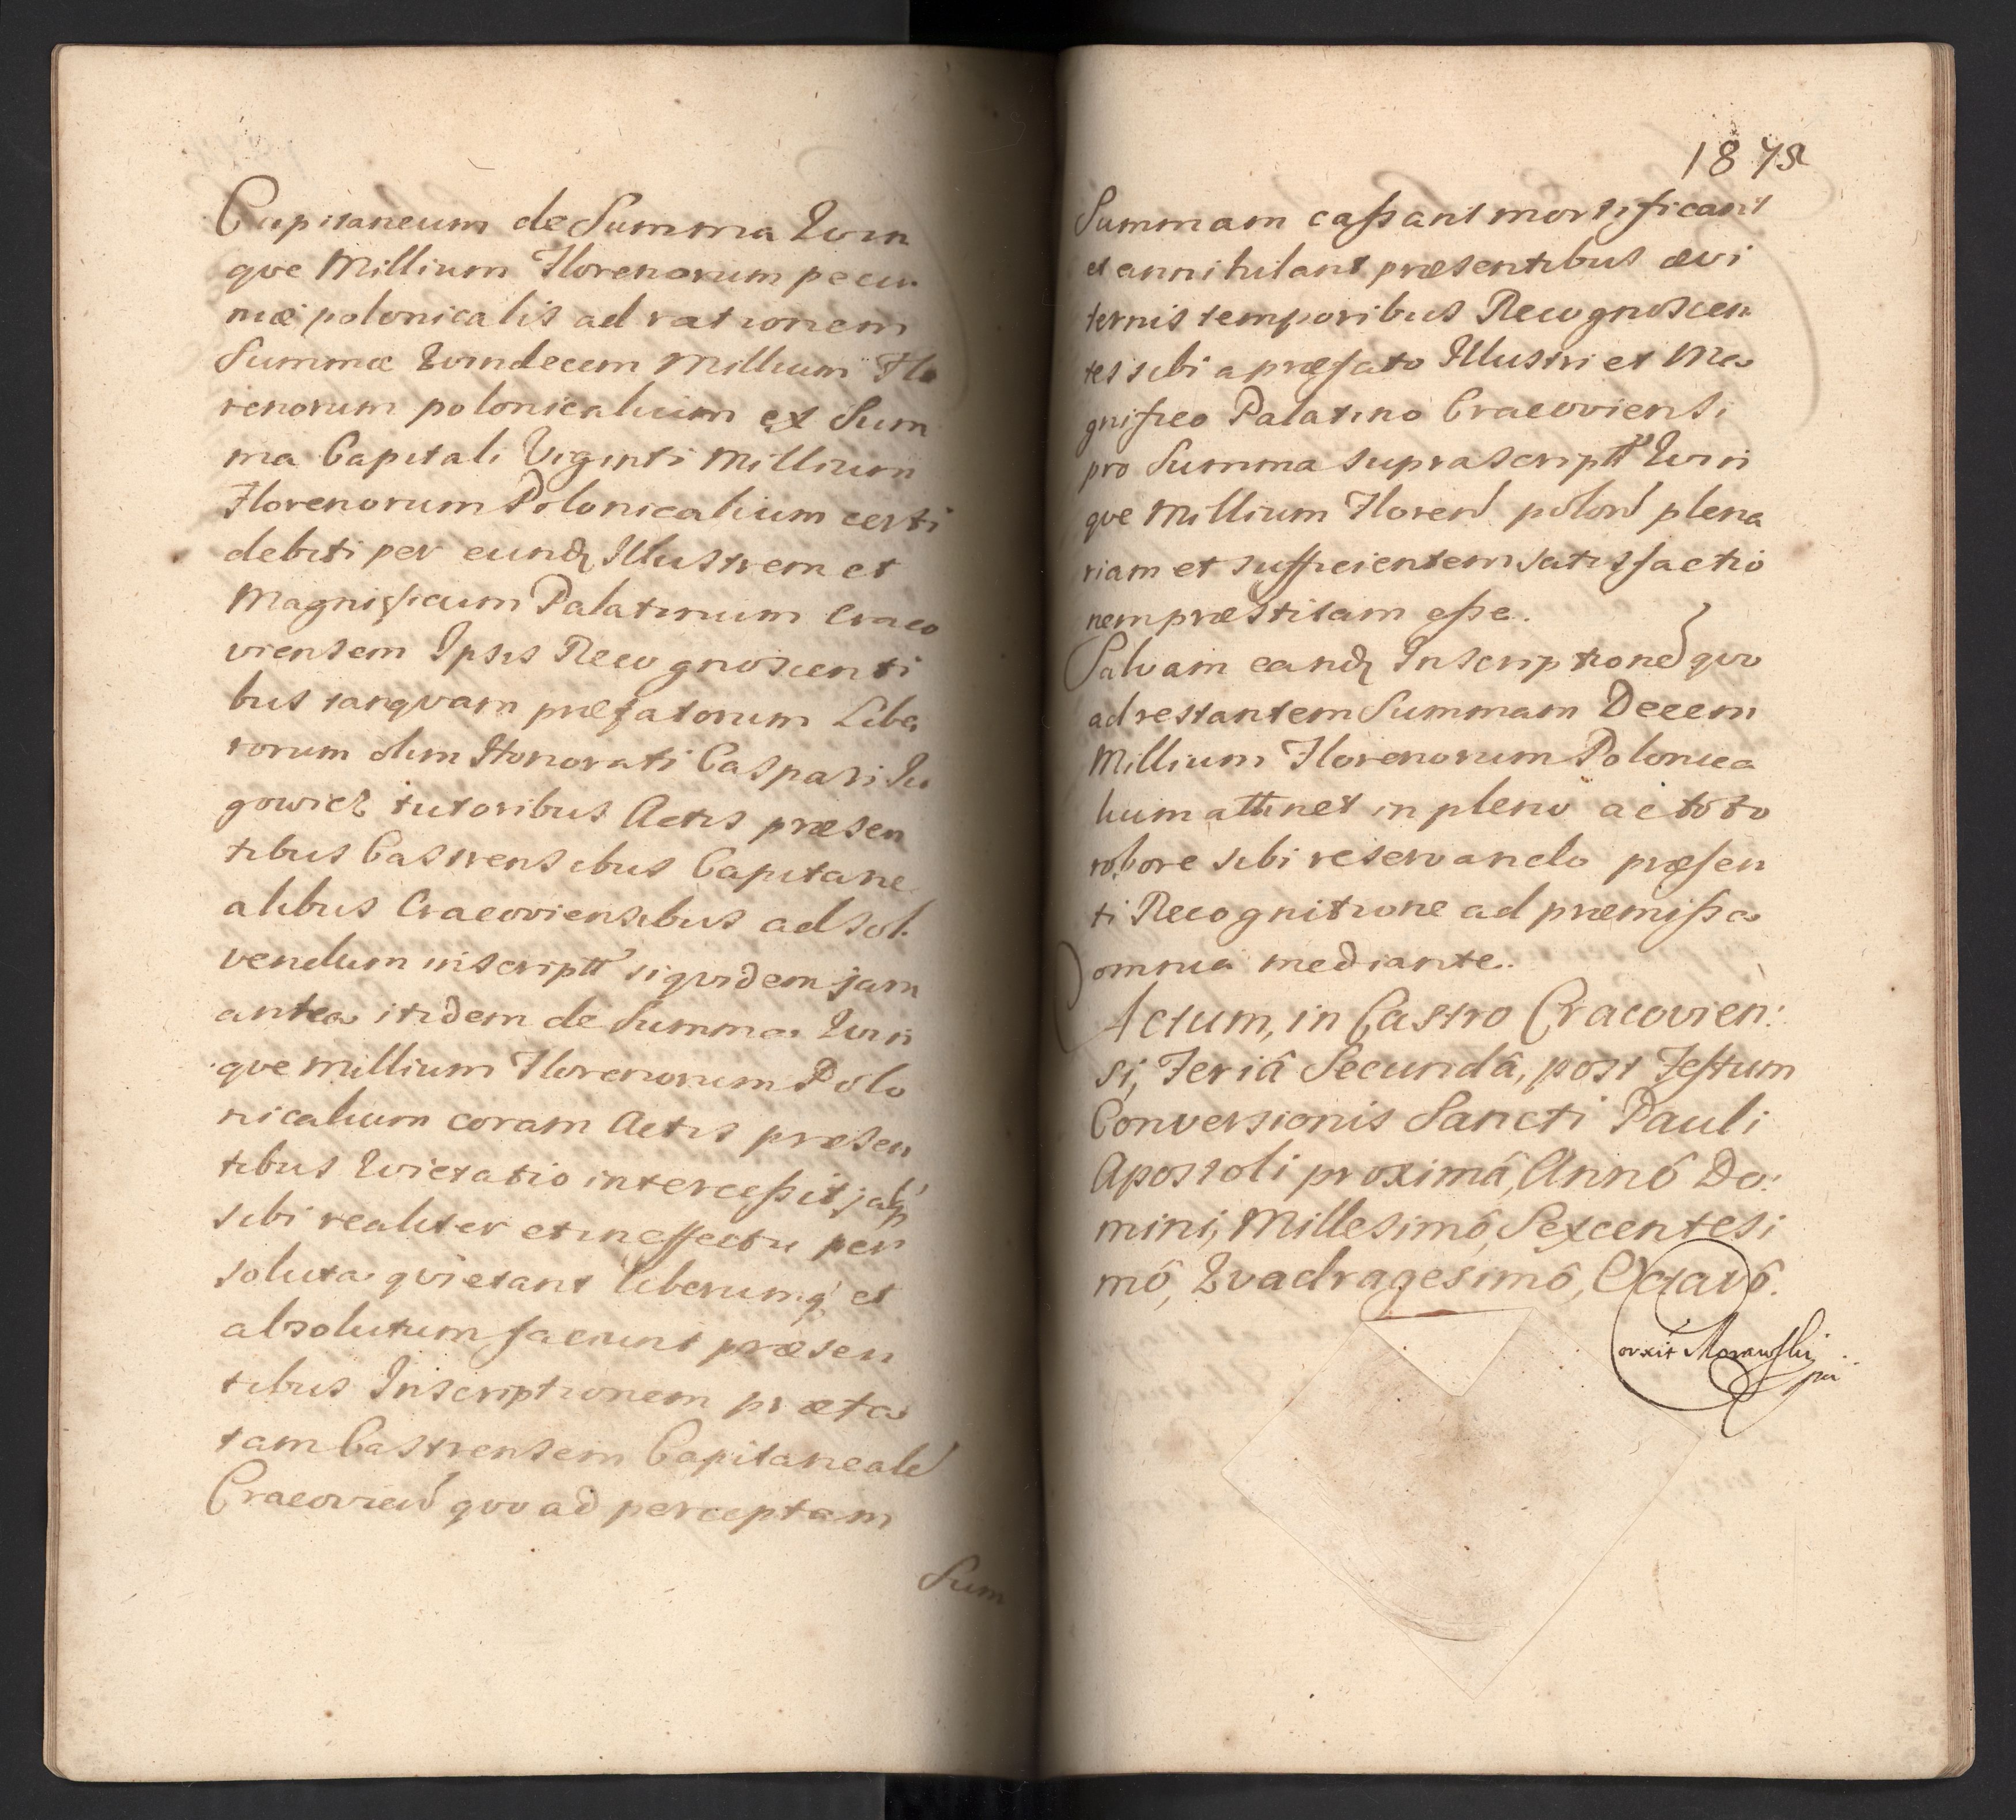 Capitaneum de Summa Quin
que Millium Florenorum pecu
niæ polonicalis ad rationem
Summæ Quindecem Millium Flo
renorum polonicalium ex Sum
ma Capitali Viginti Millium
Florenorum Polonicalium certi
debiti per eundꝫ Illustrem et
Magnificum Palatinum Craco
viensem Ipsis Recognoscenti
bus tanquam præfatorum Libe
rorum olim Honorati Caspari Ju
gowicz tutoribus Actis præsen
tibus Castrensibus Capitane
alibus Cracoviensibus ad sol
vendum inscriptt siquidem jam
antea itidem de Summa Quin
que Millium Florenorum Polo
nicalium coram Actis præsen
tibus Quietatio intercessit
sibi realiter et in effectu per
soluta quietant liberumq et
absolutum faciunt præsen
tibus Inscriptionem præfa
tam Castrensem Capitaneale
Cracovien quo ad perceptam
Sum
187
Summam cassant mortificant
et annihilant præsentibus ævi
ternis temporibus Recognoscen
tes sibi a præfato Illustri et Ma
gnifico Palatino Cracoviensi
pro Summa suprascriptt Quin
que Millium Floren polon plena
riam et sufficientem satisfactio
nem præstitam esse.
Salvam eandꝫ Inscriptione quo
ad restantem Summam Decem
Millium Florenorum Polonica
lium attinet in pleno ac toto
robore sibi reservando præsen
ti Recognitione ad præmissa
omnia mediante.
Actum, in Castro Cracovien:
si, Feriâ Secundâ, post Festum
Conversionis Sancti Pauli
Apostoli proximâ, Annô Do:
mini, Millesimô, Sexcentesi
mô, Quadragesimô, Octavô.
Corrxit Morawski